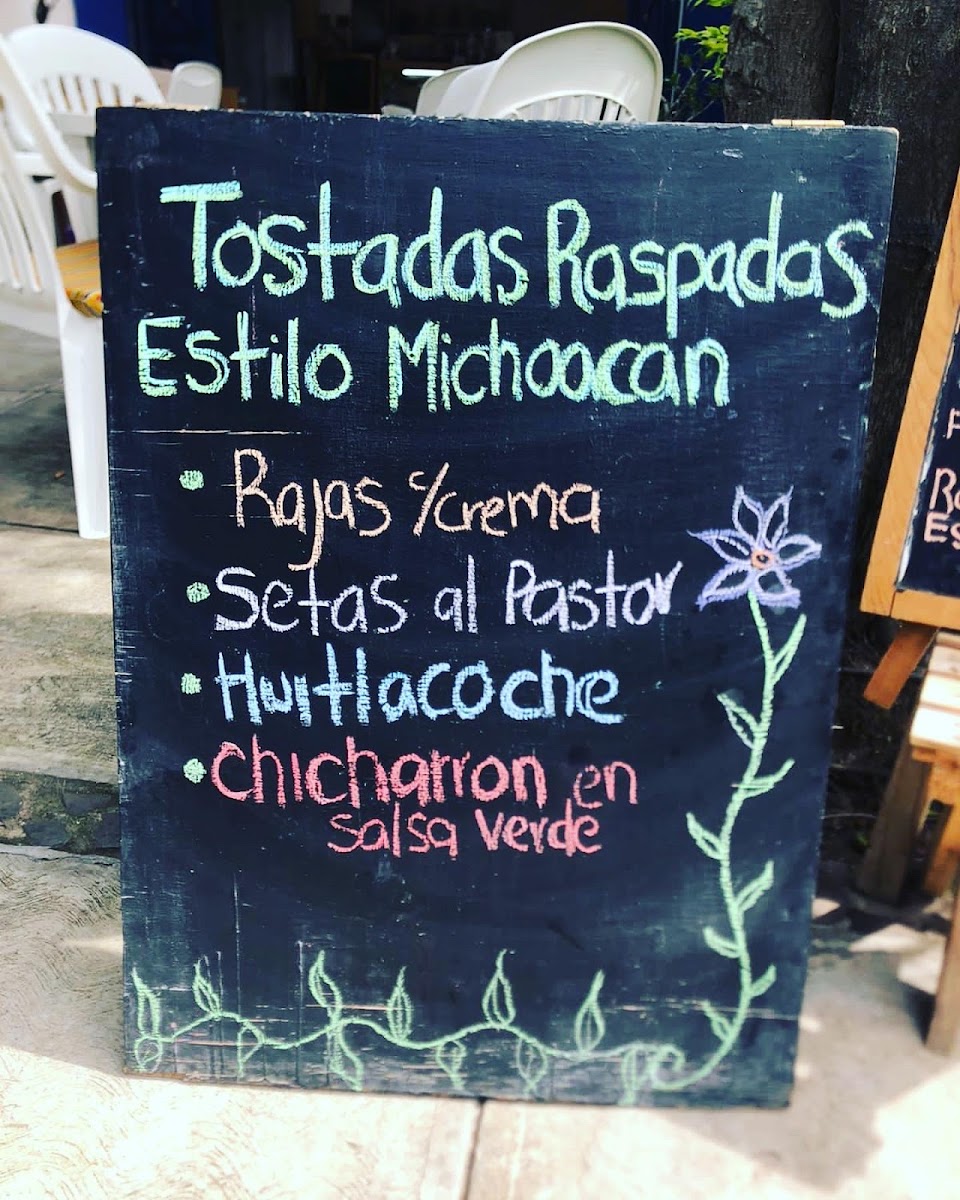 Tostadas Raspadas
Estilo Michoacan
• Rajas c/crema
• Setas al Pastor
• Huitlacoche
• Chicharron en
salsa verde